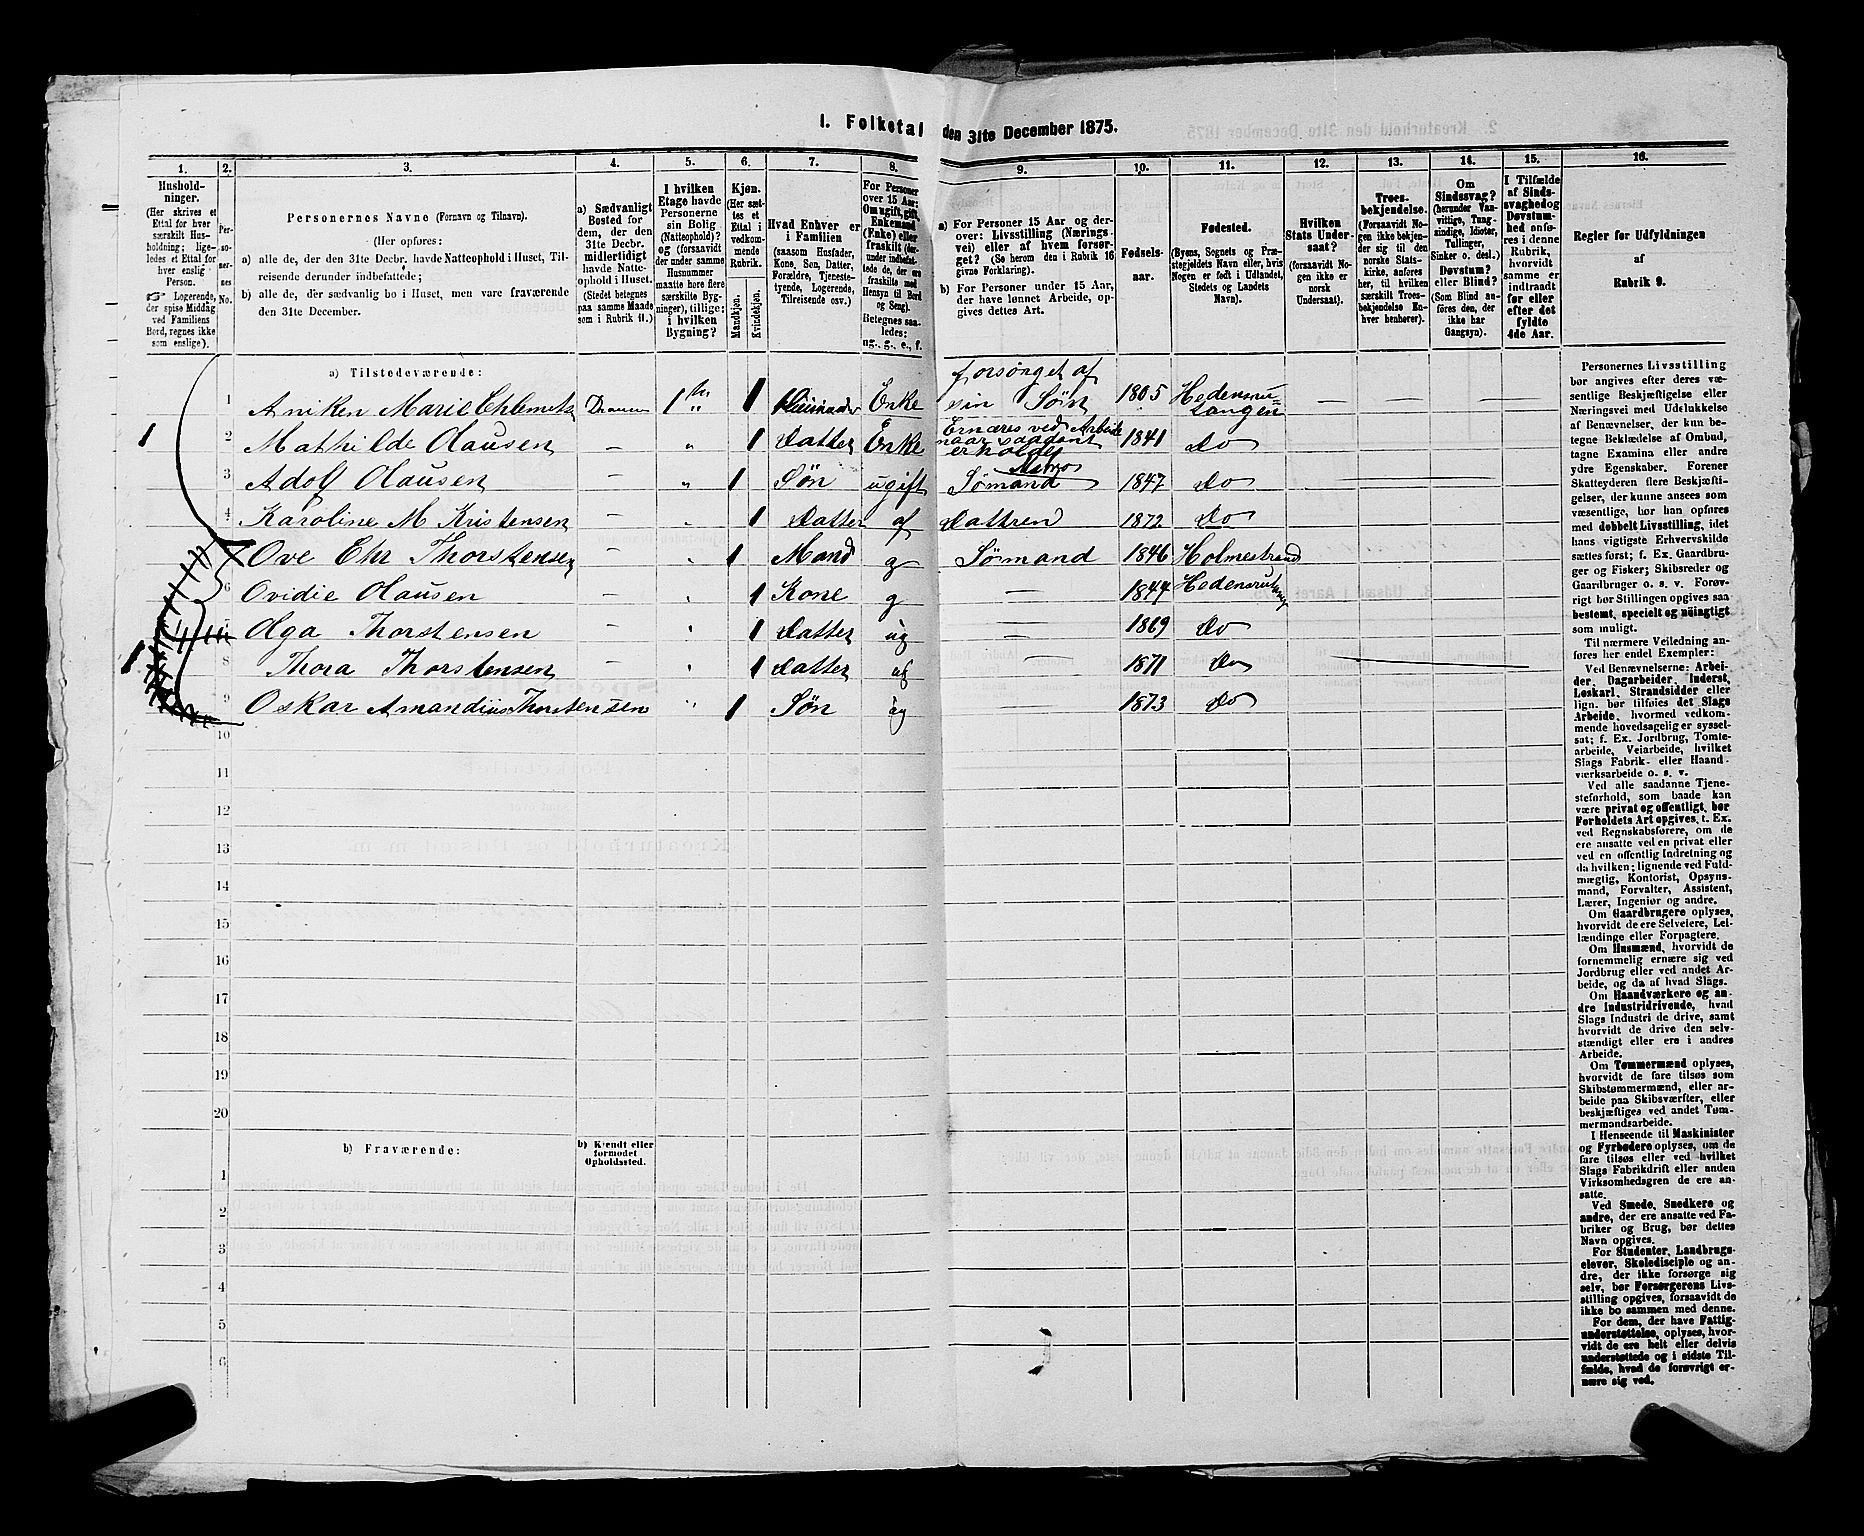 1. Folketal den 31te December 1875.
1. 2. 3. 4. 5. 6. 7. 8. 9. 10. 11. 12. 13. 14. 15. 16.
Hushold-
ninger.
(Her skrives et
Ettal for hver
særskilt Hus-
holdning; lige-
ledes et Ettal for
hver enslig
Person.
Logerende,
der spise Middag
ved Familiens
Bord, regnes ikke
som enslige).
Per-
so-
ner-
nes
No.
Personernes Navne (Fornavn og Tilnavn).
(Her opføres:
a) alle de, der den 31te Decbr. havde Natteophold i Huset, Til-
reisende derunder indbefattede;
b) alle de, der sædvanlig bo i Huset, men vare fraværende
den 31te December.
a) Sædvanligt
Bosted for
dem, der den
31te Decbr.
midlertidigt
havde Natte-
ophold i Huset.
(Stedet betegnes
paa samme Maade
som i Rubrik 11.)
I hvilken
Etage havde
Personerne
sin Bolig
(Natteophold)?
og (forsaavidt
der under samme
Husnummer
maatte høre flere
særskilte Byg-
ninger), tillige:
i hvilken
Bygning?
Kjøn.
(Her sæt-
tes et
Ettal i
vedkom-
mende
Rubrik.
Mandkjøn.
Kvindekjøn.
Hvad Enhver er
i Familien
(saasom Husfader,
Kone, Søn, Datter,
Forældre, Tjeneste-
tyende, Logerende,
Tilreisende osv.)
For Personer
over 15 Aar:
Om ugift, gift,
Enkemand
(Enke) eller
fraskilt (der-
under indbefat-
tede de, der ere
fraskilte med
Hensyn til Bord
og Seng).
Betegnes saa-
ledes:
ug., g., e., f.
a) For Personer 15 Aar og der-
over: Livsstilling (Nærings-
vei) eller af hvem forsør-
get? (Se herom den i Rubrik 16
givne Forklaring).
b) For Personer under 15 Aar,
der have lønnet Arbeide, op-
gives dettes Art.
Fødsels-
aar.
Fødested.
(Byens, Sognets og Præ-
stegjeldets Navn eller, hvis
Nogen er født i Udlandet,
Stedets og Landets
Navn).
Hvilken
Stats Under-
saat?
(forsaavidt No-
gen ikke er
norsk
Undersaat).
Troes-
bekjendelse.
(Forsaavidt No-
gen ikke bekjen-
der sig til den
norske Stats-
kirke, anføres
her, til hvilken
særskilt Troes-
bekjendelse En-
hver henhører).
Om
Sindssvag?
(herunder Van-
vittige, Tung-
sindige, Idioter,
Tullinger,
Sinker o. desl.)
Døvstum?
eller Blind?
(Som Blind an-
føres den, der
ikke har
Gangsyn).
I Tilfælde
af Sinds-
svaghed og
Døvstum-
hed anføres
i denne
Rubrik,
hvorvidt
samme er
indtraadt
før eller
efter det
fyldte
4de Aar.
Regler for Udfyldningen
af
Rubrik 9.
a) Tilstedeværende:
1 Aniken Marie 1 Enke forsørget af sin Søn 1805
1 2 Mathilde Olausen 1 Datter Enke Ernæres ved Arbeide naar saadant erholdes 1841 Do
3 Adolf Olausen 1 Søn ugift Sømand 1847 Do
4 Karoline M Kristensen 1 Datter af Dattren 1872 Do
Ove Chr Thorstensen 1 Mand g Sømand 1846 Holmestrand
6 Ovidie Olausen 1 Kone g 1847
Olga Thorstensen 1 Datter ug 1869 Do
8 Thora Thorstensen 1 Datter ug 1871 Do
9 Oskar Amandius Thorstensen 1 Søn ug 1873 Do
10
11
12
13
14
15
16
17
18
19
20
b) Fraværende: b) Kjendt eller
formodet
Opholdssted.
1
2
3
4
5
6
Personernes Livsstilling
bør angives efter deres væ-
sentlige Beskjæftigelse eller
Næringsvei med Udelukkelse
af Benævnelser, der kun be-
tegne Beklædelse af Ombud,
tagne Examina eller andre
ydre Egenskaber. Forener
Skatteyderen flere Beskjæfti-
gelser, der kunne ansees som
væsentlige, bør han opføres
med dobbelt Livsstilling, idet
hans vigtigste Erhvervskilde
sættes først; f. Ex. Gaardbru-
ger og Fisker; Skibsreder og
Gaardbruger o. s. v. Forøv-
rigt bør Stillingen opgives saa
bestemt, specielt og nøiagtigt
som muligt.
Til nærmere Veiledning an-
føres her endel Exempler:
Ved Benævnelserne: Arbei-
der, Dagarbeider, Inderst,
Løskarl, Strandsidder eller
lign. bør tilføies det Slags
Arbeide, hvormed vedkom-
mende hovedsagelig er syssel-
sat; f. Ex. Jordbrug, Tomte-
arbeide, Veiarbeide, hvilket
Slags Fabrik- eller Haand-
værksarbeide o. s. v.
Ved alle saadanne Tjene-
steforhold, som baade kan
være privat og offentligt, bør
Forholdets Art opgives, t. Ex.
ved Regnskabsførere, om de
ere ansatte ved en privat eller
ved en offentlig Indretning og
da hvilken; lignende ved Fuld-
mægtig, Kontorist, Opsyns-
mand, Forvalter, Assistent,
Lærer, Ingeniør og andre.
Om Gaardbrugere oplyses,
hvorvidt de ere Selveiere, Lei-
lændinge eller Forpagtere.
Om Husmænd, hvorvidt de
fornemmelig ernære sig ved
Jordbrug eller ved andet Ar-
beide, og da af hvad Slags.
Om Haandværkere og an-
dre Industridrivende, hvad
Slags Industri de drive, samt
hvorvidt de drive den selv-
stændigt eller ere i andres
Arbeide.
Om Tømmermænd oplyses,
hvorvidt de fare tilsøs som
Skibstømmermænd, eller ar-
beide paa Skibsværfter, eller
beskjæftiges ved andet Tøm-
mermandsarbeide.
I Henseende til Maskinister
og Fyrbødere oplyses, om de
fare tilsøs eller ved hvilket
Slags Fabrikdrift eller anden
Virksomhedsgren de ere an-
satte.
Ved Smede, Snedkere og
andre, der ere ansatte ved Fa-
briker og Brug, bør dettes
Navn opgives.
For Studenter, Landbrugs-
elever, Skoledisciple og an-
dre, der ikke forsørge sig
selv, bør Forsørgerens Livs-
stilling opgives, forsaavidt de
ikke bo sammen med denne.
For dem, der have Fattig-
understøttelse, oplyses, hvor-
vidt de ere helt eller delvis
understøttede og i sidste Til-
fælde, hvad de forøvrigt er-
nære sig ved.